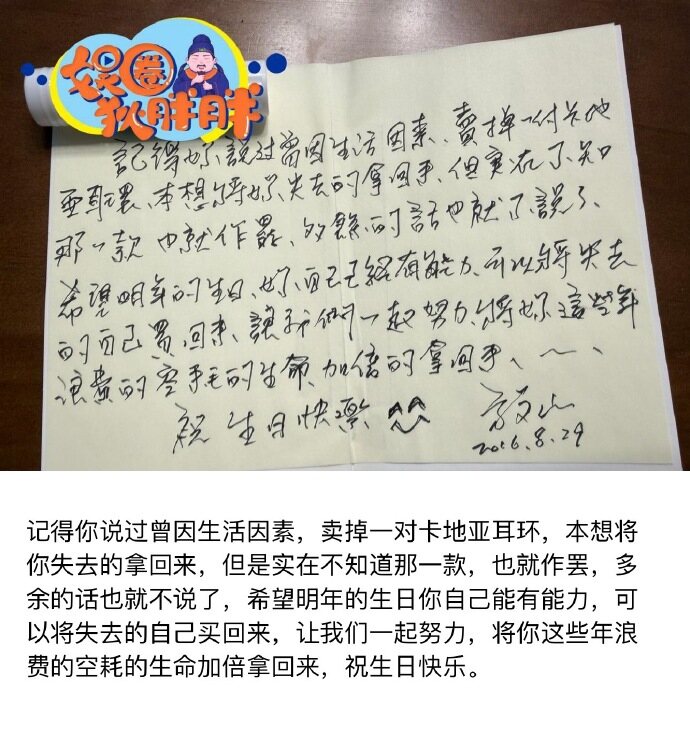 娱圈
狄胖胖
記得妳說过曾因生活因素、賣掉一付卡地
亜耳環、本想將妳失去的拿回來、但实在不知
那一款 也就作罷、多餘的話也就不説了、
希望明年的生日、妳自己已經有能力、可以將失去
的自己買回來、讓我們一起努力、將妳這些年
浪費的空耗的生命、加倍的拿回來、~、
祝 生日快樂 ^^
2016.8.29
记得你说过曾因生活因素，卖掉一对卡地亚耳环，本想将
你失去的拿回来，但是实在不知道那一款，也就作罢，多
余的话也就不说了，希望明年的生日你自己能有能力，可
以将失去的自己买回来，让我们一起努力，将你这些年浪
费的空耗的生命加倍拿回来，祝生日快乐。